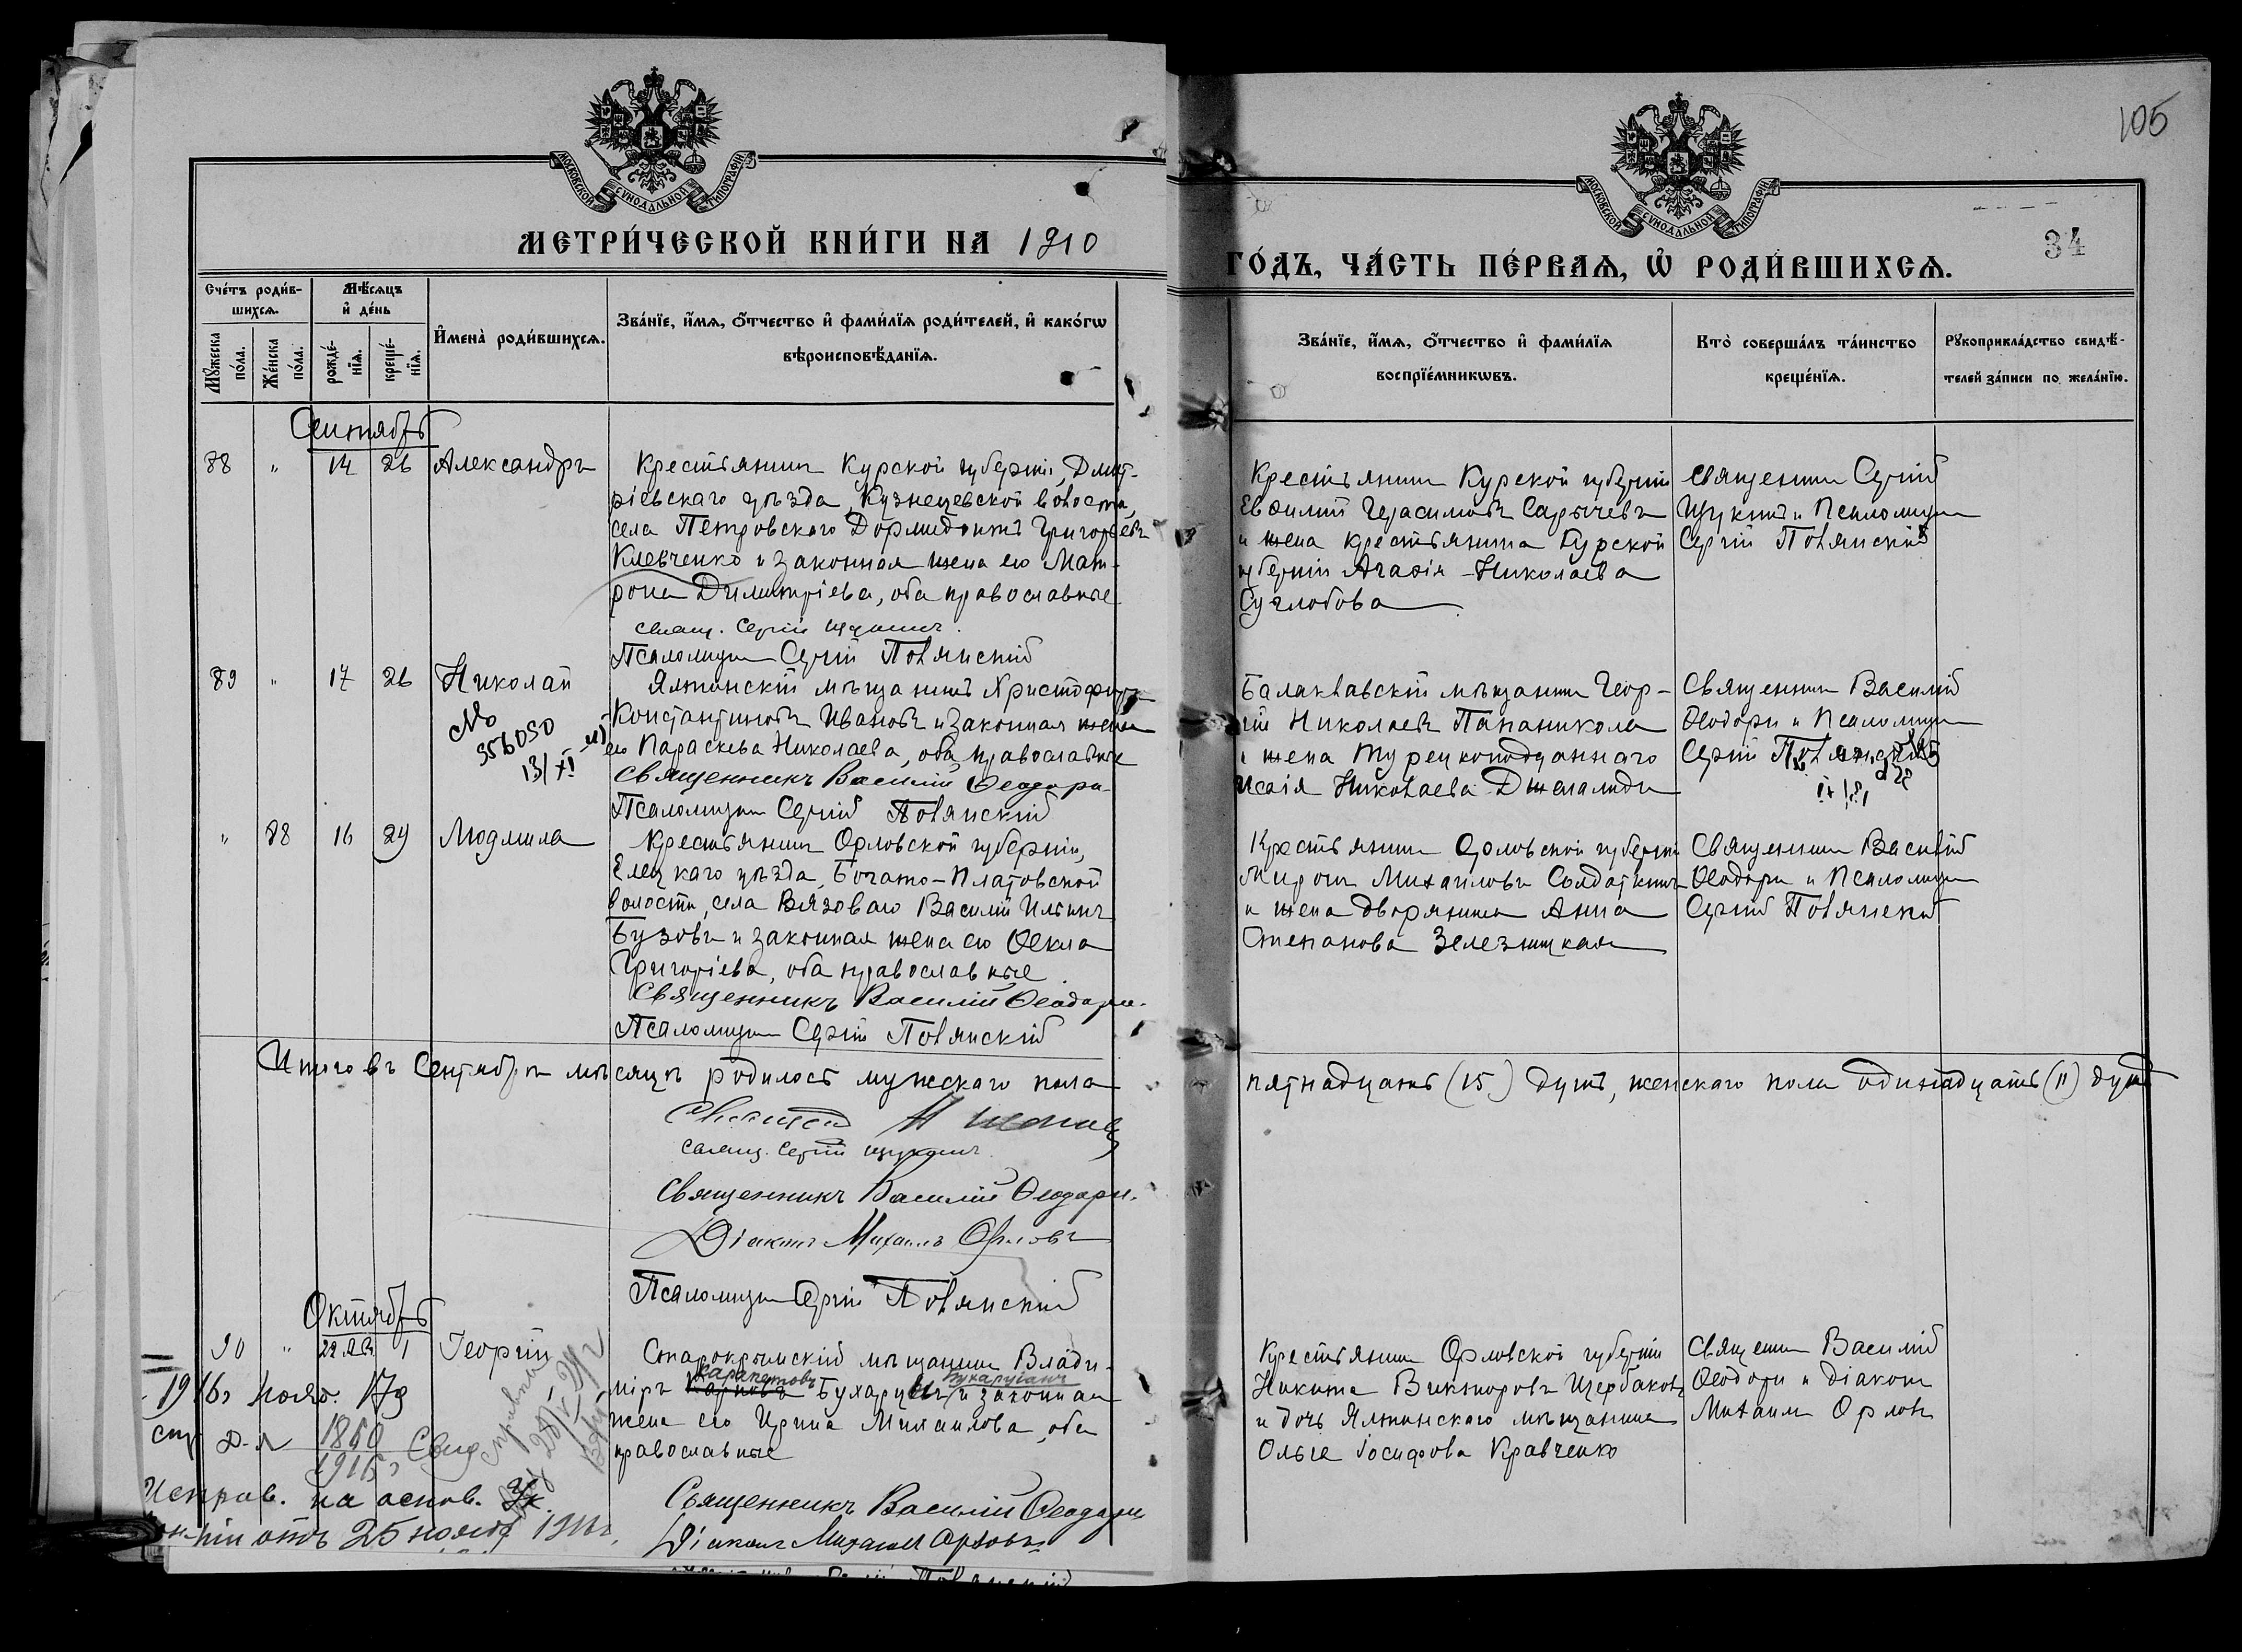 105
МОСКОВСКОЙ СѴНОДАЛЬНОЙ ТИПОГРАФІИ
МОСКОВСКОЙ СѴНОДАЛЬНОЙ ТИПОГРАФІИ
МЕТРИ́ЧЕСКОЙ КНИ́ГИ НА 1910
ГО́ДЪ, ЧА́СТЬ ПЕ́РВАѦ, Ѽ РОДИ́ВШИХСѦ.
34
Сче́тъ роди́в-
шихсѧ.
Мꙋ́жеска по́ла.
Же́нска по́ла.
Мѣ́сѧцъ
и҆ де́нь
рожде́-
нїѧ.
креще́-
нїѧ.
И҆мена̀ роди́вшихсѧ.
Зва́нїе, и҆́мѧ, ѻ҆́тчество и҆ фами́лїѧ роди́телей, и҆ како́гѡ
вѣроисповѣ́данїѧ.
Зва́нїе, и҆́мѧ, ѻ҆́тчество и҆ фами́лїѧ
воспрїе́мникѡвъ.
Кто̀ соверша́лъ та́инство
креще́нїѧ.
Рꙋкоприкла́дство свидѣ́-
телей за́писи по жела́нїю.
Сентябрь
88 " 14 26 Александръ
Крестьянинъ Курской губерніи, Дмит-
ріевскаго уѣзда, Кузнецевской волости,
села Петровскаго Дормидонтъ Григорьевъ
Клевченко и законная жена его Мат-
рона Димитріева, оба православные
свящ. Сергій Щукинъ.
Псаломщикъ Сергій Полянскій
Крестьянинъ Курской губерніи
Евфимій Герасимовъ Сарычевъ
и жена крестьянина Курской
губерніи Агафія Николаева
Суглобова
Священникъ Сергій
Щукинъ и Псаломщикъ
Сергій Полянскій
89 " 17 26 Николай
№
356050
13/XI
Ялтинскій мѣщанинъ Христофоръ
Константиновъ Ивановъ и законная жена
его Параскева Николаева, оба православные
Священникъ Василій Ѳеодори
Псаломщикъ Сергій Полянскій
Балаклавскій мѣщанинъ Геор-
гій Николаевъ Папаникола
и жена Турецкоподданнаго
Исаія Николаева Джелалиди
Священникъ Василій
Ѳеодори и Псаломщикъ
Сергій Полянскій
" 88 16 29 Людмила
Крестьянинъ Орловской губерніи,
Елецкаго уѣзда, Богато-Платовской
волости, села Вязоваго Василій Ильинъ
Бузовъ и законная жена его Ѳекла
Григоріева, оба православные.
Священникъ Василій Ѳеодори.
Псаломщикъ Сергій Полянскій
Крестьянинъ Орловской губерніи
Миронъ Михаиловъ Солдаткинъ
и жена дворянина Анна
Степанова Зелезницкая
Священникъ Василій
Ѳеодори и Псаломщикъ
Сергій Полянскій
Итого въ Сентябрѣ мѣсяцѣ родилось мужскаго пола
пятнадцать (15) душъ, женскаго пола одинадцать (11) душъ
свящ. Сергій Щукинъ
Священникъ Василій Ѳеодори.
Діаконъ Михаилъ Орловъ
Псаломщикъ Сергій Полянскій
Октябрь
90 " 1 Георгій
Старокрымскій мѣщанинъ Влади-
міръ Карапетовъ Бухаруціанъ и законная
жена его Ирина Михаилова, оба
православные
Священникъ Василій Ѳеодори
Діаконъ Михаилъ Орловъ
Крестьянинъ Орловской губерніи
Никита Викторовъ Щербаковъ
и дочь Ялтинскаго мѣщанина
Ольга Іосифова Кравченко
Священникъ Василій
Ѳеодори и діаконъ
Михаилъ Орловъ
1916г нояб. 17д
1860
1916г
Исправ. на основ. Ук.
отъ 25 нояб 1916г.